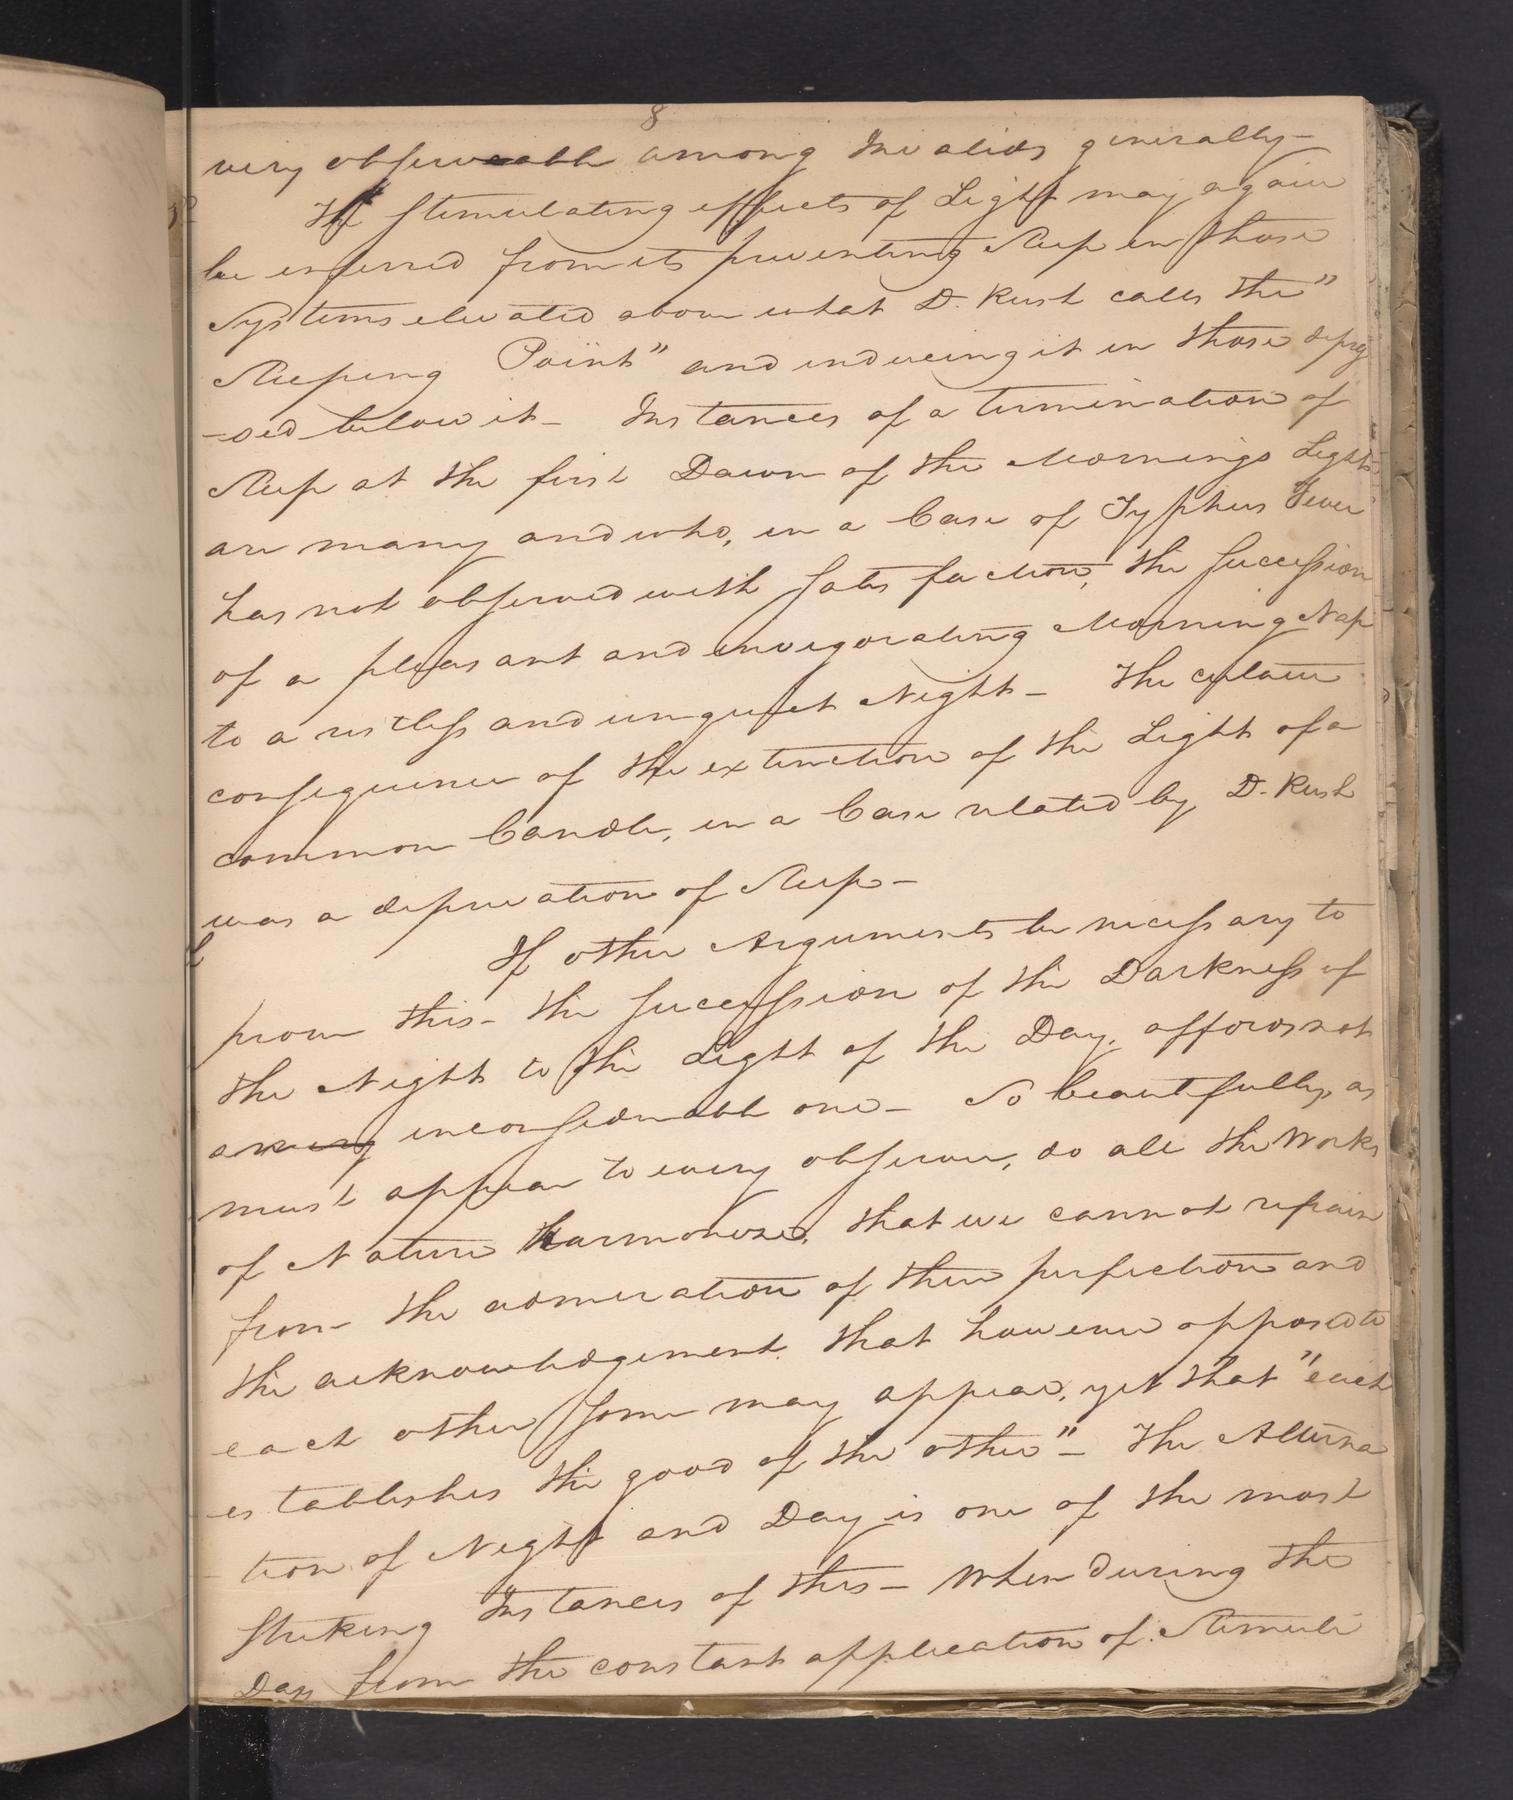 8
very observable among Invalids generally-
The stimulating effects of Light may again
be inferred from its preventing Sleep in those
Systems elevated above what D. Rush calls the "
Sleeping Point" and inducing it in those depres
-sed below it- Instances of a termination of
Sleep at the first Dawn of the Mornings Light
are many and who, in a Case of Typhus Fever
has not observed with satisfaction, the succession
of a pleasant and invigorating Morning Nap
to a restless and unquiet Night- The certain
consequence of the extinction of the Light of a
common Candle, in a Case related by D. Rush
was a deprivation of Sleep-
If other Arguments be necessary to
prove this- the succession of the Darkness of
the Night to the Light of the Day, affords not
an very inconsiderable one- So beautifully, as
must appear to every observer, do all the Works
of Nature harmonize, that we cannot refrain
from the admiration of their perfection and
the acknowledgement that however opposed to
each other some may appear, yet that "each
establishes the good of the other"- The Alterna
tion of Night and Day is one of the most
striking Instances of this- When during the
Day from the constant application of Stimuli